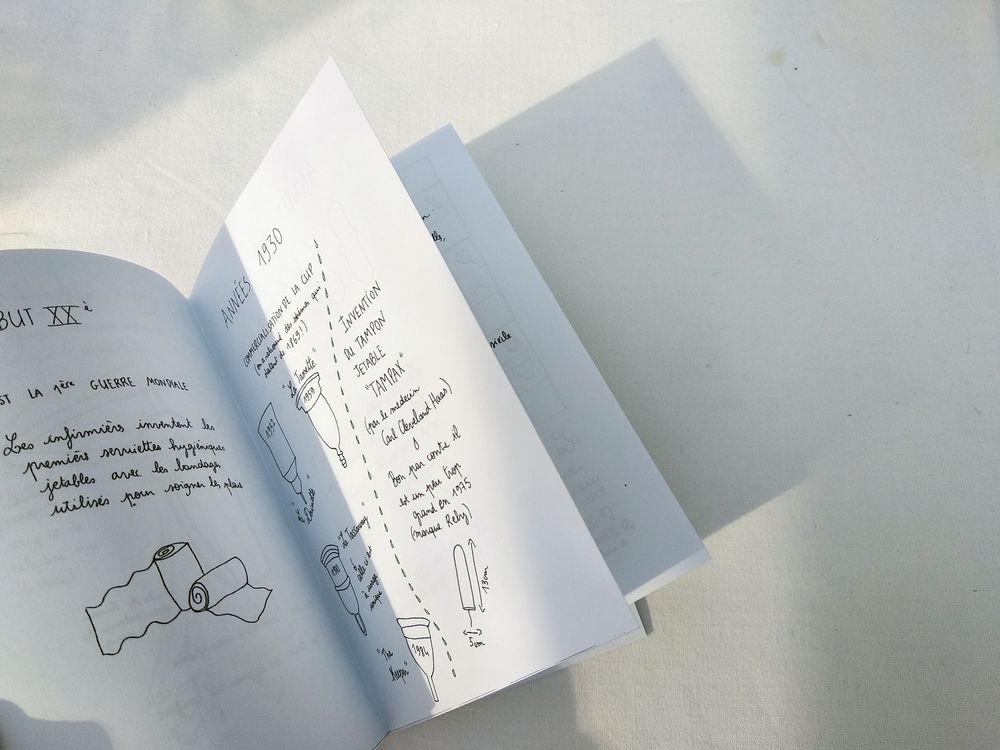 BUT XXè
ST LA 1ère GUERRE MONDIALE
Les infirmièrs inventent les
premières serviettes hygiéniques
jetables avec les bandages
utilisés pour soigner les plaies
ANNÉES 1930
COMMERCIALISATION DE LA CUP
datent de 1869!)
"La Tassette"
1959
1932
"Daintette"
"La Tassaway"
celle ci est
à usage
unique
1970
"The
Keeper"
1984
INVENTION
DU TAMPON
JETABLE
"TAMPAX"
(par le medecin
Carl Cleveland Haas)
Bon par contre il
est un peu trop
grand en 1975
(marque Rely)
13cm
5cm